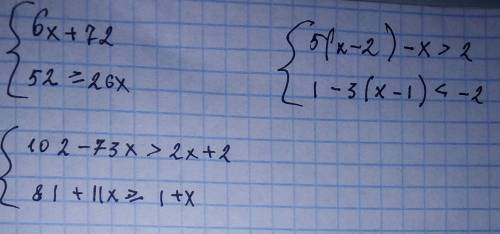 6x+72
52 ≥ 26x
5(x-2)-x > 2
1-3(x-1) < -2
102-73x > 2x+2
81+11x ≥ 1+x